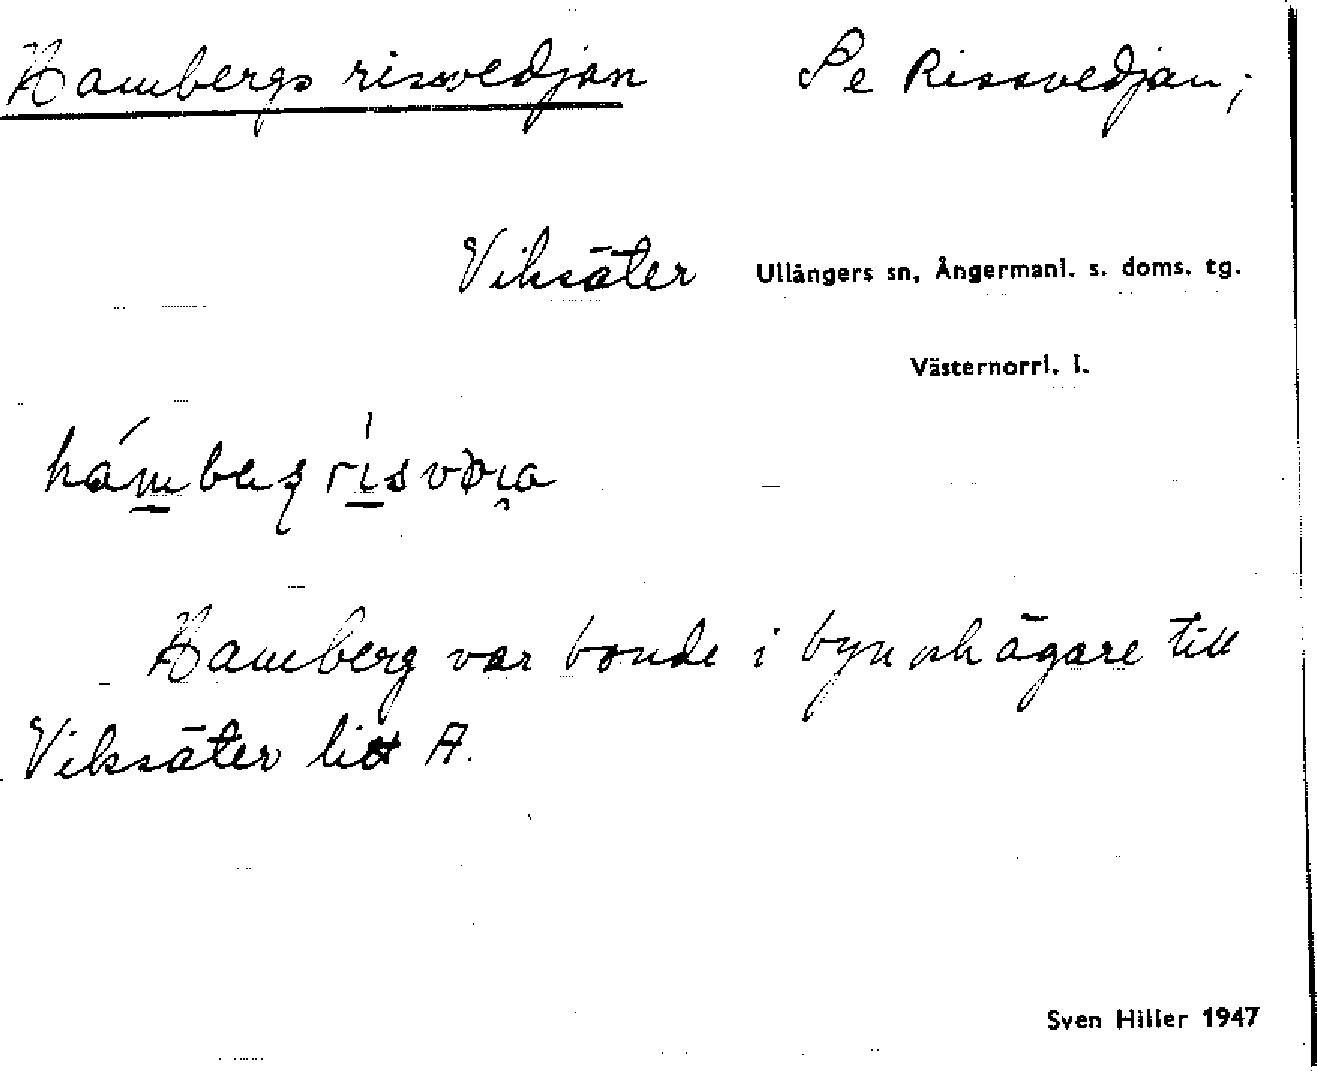 Hambergs rissvedjan Se Rissvedjan;
Viksäter Ullångers sn, Ångermanl. s. doms. tg.
Västernorrl. l.
Hamberg var bonde i byn och ägare till
Viksäter litt A.
Sven Hiller 1947